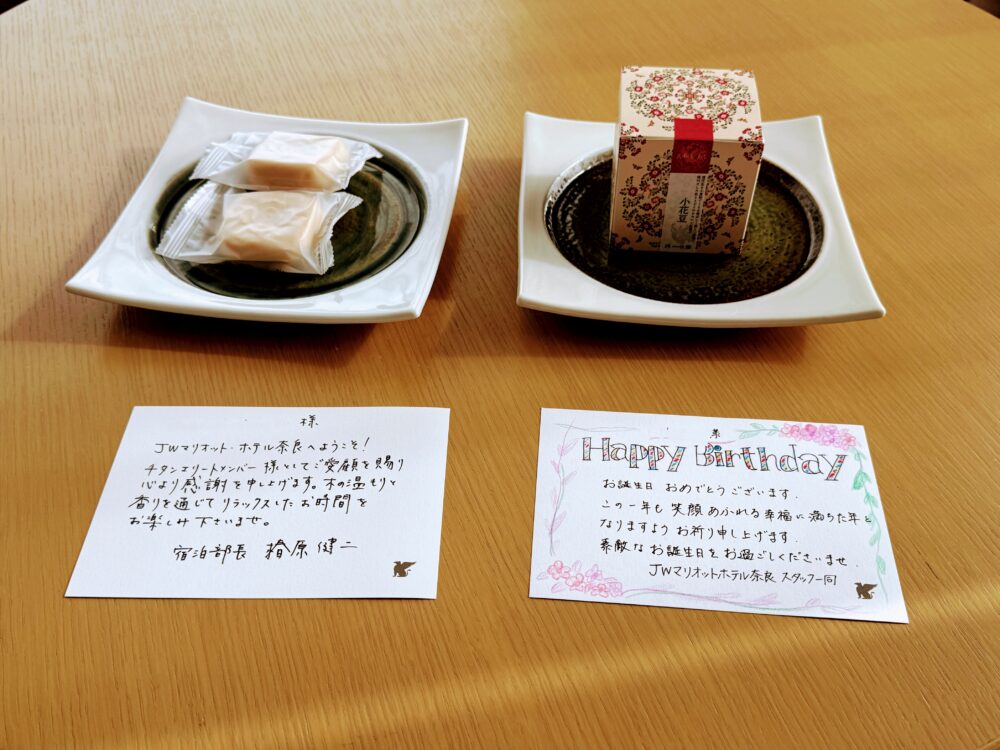 小花豆
様
JWマリオット・ホテル奈良へようこそ!
チタンエリートメンバー様としてご愛顧を賜り
心より感謝を申し上げます。木の温もりと
香りを通じてリラックスしたお時間を
お楽しみ下さいませ。
宿泊部長 檜原健二
様
Happy Birthday
お誕生日おめでとうございます.
この一年も笑顔あふれる幸福に満ちた年と
なりますようお祈り申し上げます.
素敵なお誕生日をお過ごしくださいませ.
JWマリオットホテル奈良スタッフ一同